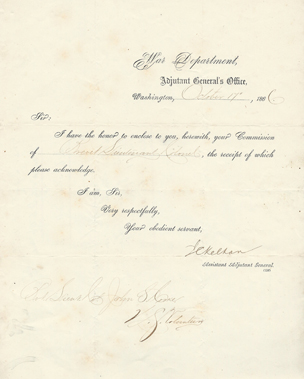 War Department,
Adjutant General's Office,
Washington, October 18, 1866
Sir:
I have the honor to enclose to you, herewith, your Commission
of Brevet Lieutenant Colonel, the receipt of which
please acknowledge.
I am, Sir,
Very respectfully,
Your obedient servant,
Assistant Adjutant General.
John S.
U.S. Volunteers